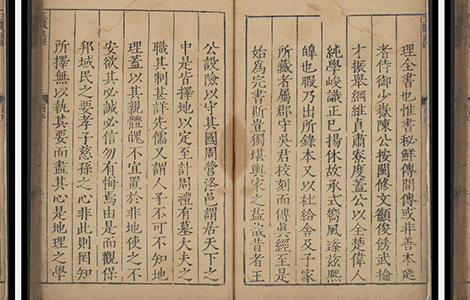 理全書也惟書秘鮮傳間傳或非善本廼
者侍御少嶽陳公按閩修文顧俊飭武掄
才振舉綱維貞肅寮度蓋公以全楚偉人
純學峻識正已揚休故承式嚮風遠玆熙
皥也暇乃出所錄本又以杜給舍及子家
所藏者屬郡守吳君校刻而傳眞經至是
始爲完書斯豈獨堪輿家之益哉昔者王
公設險以守其國周營洛邑謂居天下之
中是皆擇地以定至計周禮有墓大夫之
職其制甚詳先儒又謂人子不可不知地
理蓋以其親體魄不宜置於非地使之不
安欲其必誠必信勿有悔焉由是而觀保
邦域民之要孝子慈孫之心非此則罔知
所擇無以執其要而盡其心是地理之學